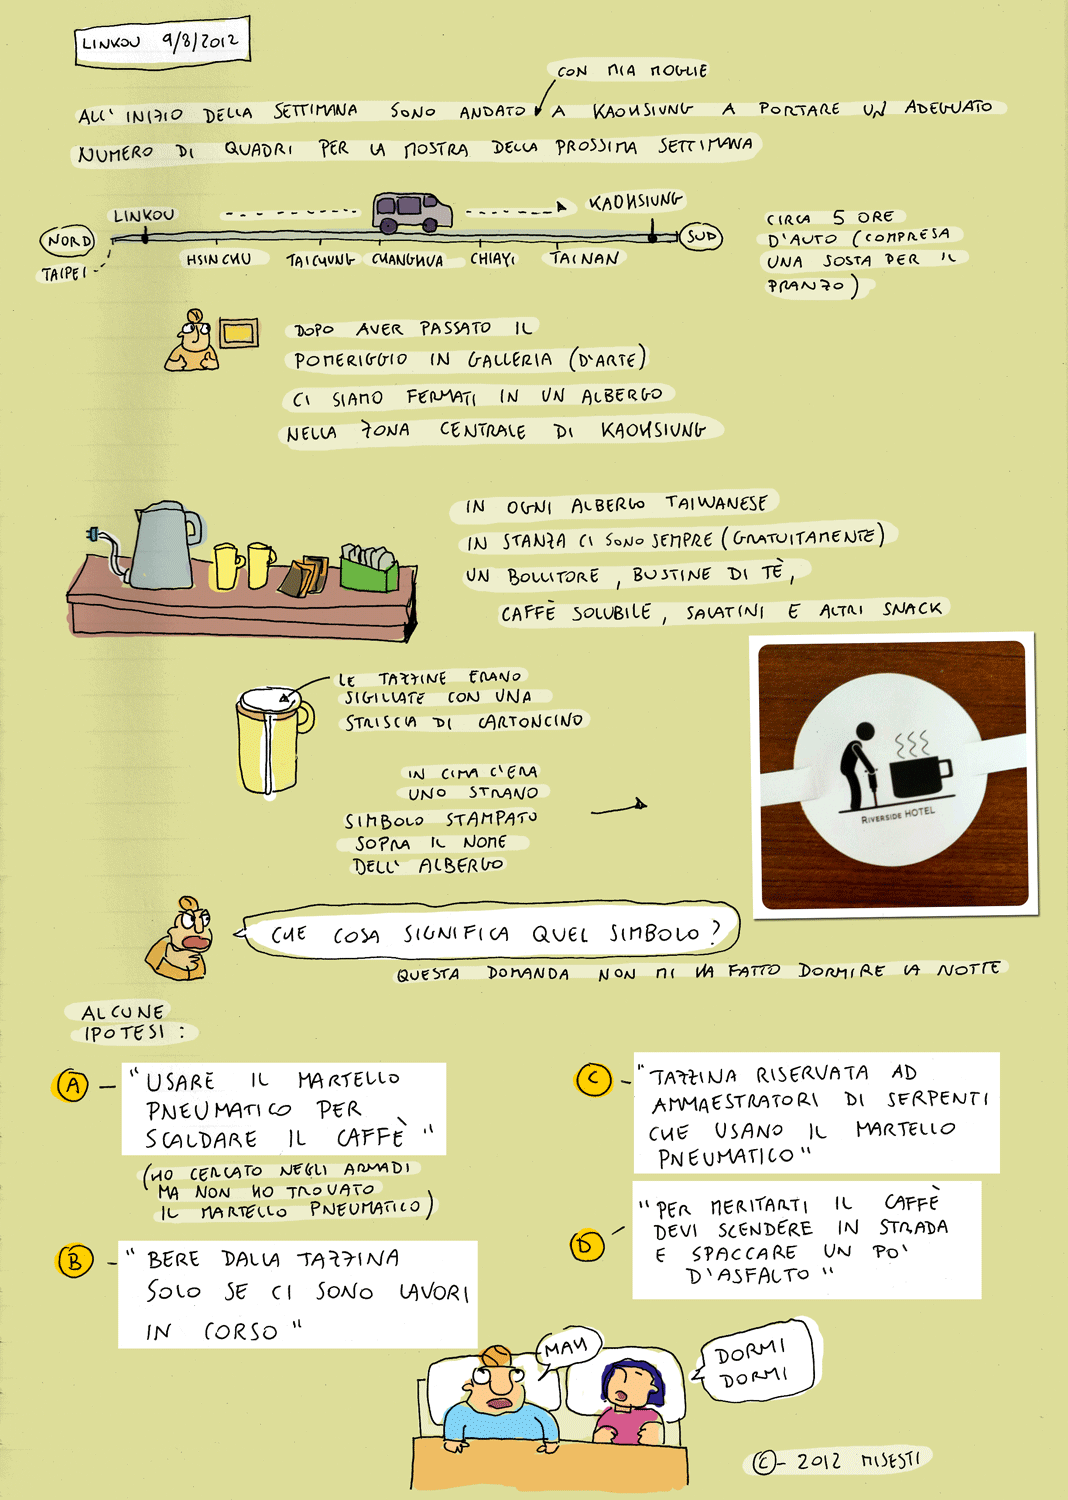 LINKOU 9/8/2012
CON MIA MOGLIE
ALL'INIZIO DELLA SETTIMANA SONO ANDATO A KAOHSIUNG A PORTARE UN ADEGUATO
NUMERO DI QUADRI PER LA MOSTRA DELLA PROSSIMA SETTIMANA
LINKOU
KAOHSIUNG
NORD
SUD
TAIPEI
HSINCHU
TAICHUNG
CHANGHUA
CHIAYI
TAINAN
CIRCA 5 ORE
D'AUTO (COMPRESA
UNA SOSTA PER IL
PRANZO)
DOPO AVER PASSATO IL
POMERIGGIO IN GALLERIA (D'ARTE)
CI SIAMO FERMATI IN UN ALBERGO
NELLA ZONA CENTRALE DI KAOHSIUNG
IN OGNI ALBERGO TAIWANESE
IN STANZA CI SONO SEMPRE (GRATUITAMENTE)
UN BOLLITORE, BUSTINE DI TÈ,
CAFFÈ SOLUBILE, SALATINI E ALTRI SNACK
LE TAZZINE ERANO
SIGILLATE CON UNA
STRISCIA DI CARTONCINO
IN CIMA C'ERA
UNO STRANO
SIMBOLO STAMPATO
SOPRA IL NOME
DELL'ALBERGO
RIVERSIDE HOTEL
CHE COSA SIGNIFICA QUEL SIMBOLO?
QUESTA DOMANDA NON MI HA FATTO DORMIRE LA NOTTE
ALCUNE
IPOTESI:
A - "USARE IL MARTELLO
PNEUMATICO PER
SCALDARE IL CAFFÈ"
(HO CERCATO NEGLI ARMADI
MA NON HO TROVATO
IL MARTELLO PNEUMATICO)
B - "BERE DALLA TAZZINA
SOLO SE CI SONO LAVORI
IN CORSO"
C - "TAZZINA RISERVATA AD
AMMAESTRATORI DI SERPENTI
CHE USANO IL MARTELLO
PNEUMATICO"
D - "PER MERITARTI IL CAFFÈ
DEVI SCENDERE IN STRADA
E SPACCARE UN PO'
D'ASFALTO"
MAH
DORMI
DORMI
©-2012 MISESTI